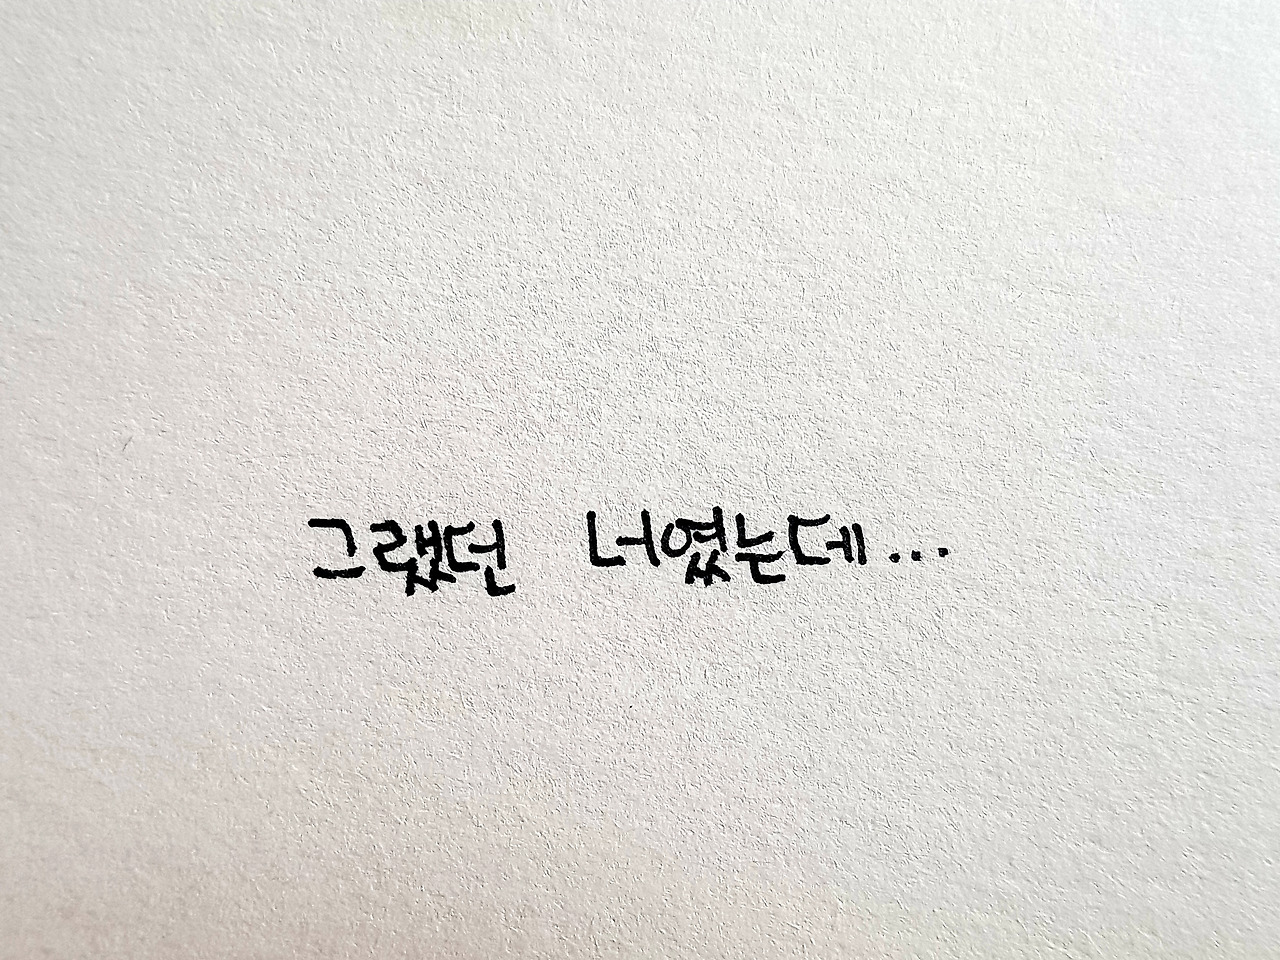 그랬던 너였는데...